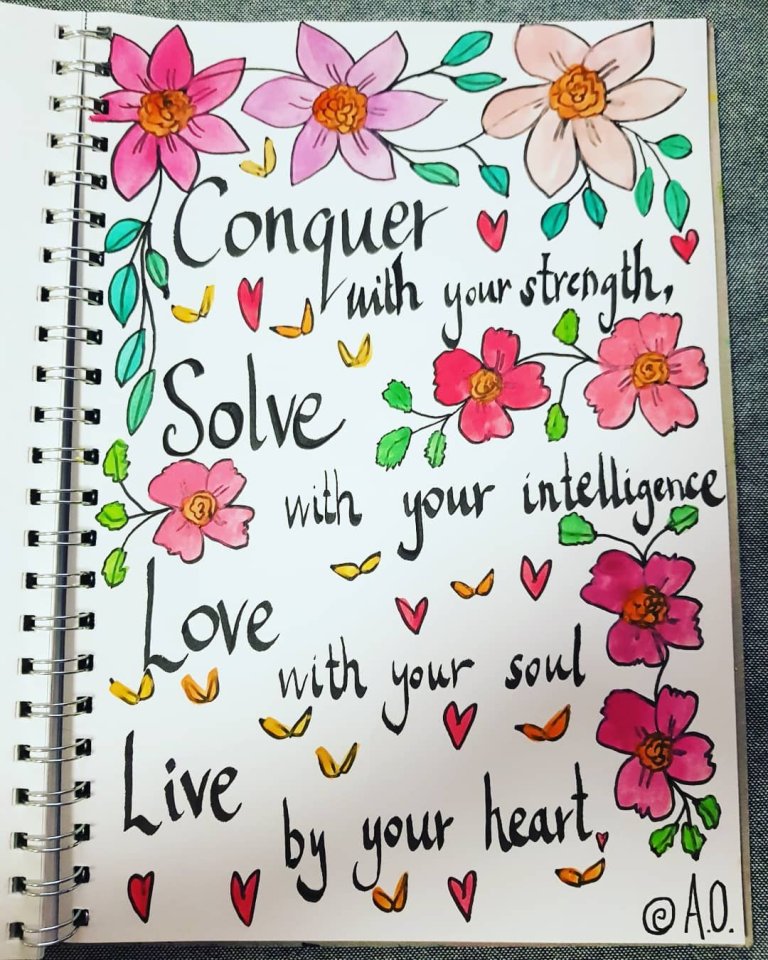 Conquer
with your strength,
Solve
with your intelligence
Love
with your soul
Live
by your heart.
© A.O.